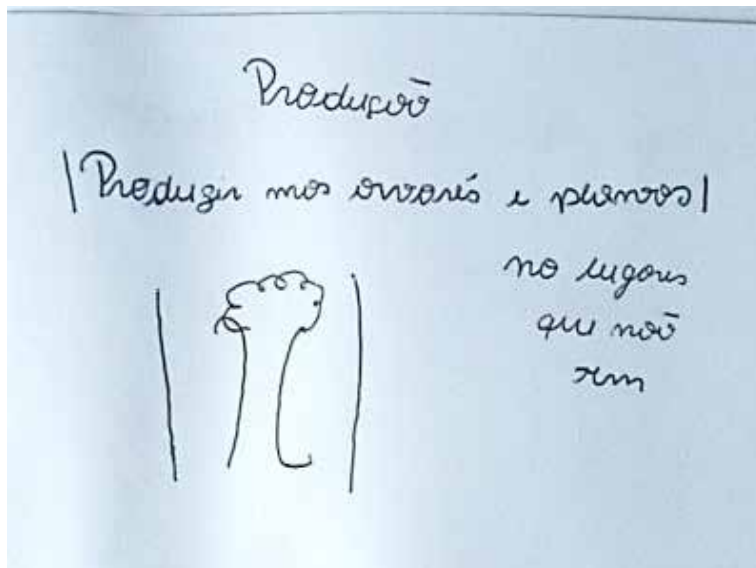 Produção
Produzir mos arvorés e plantas
no lugares
que não
tem